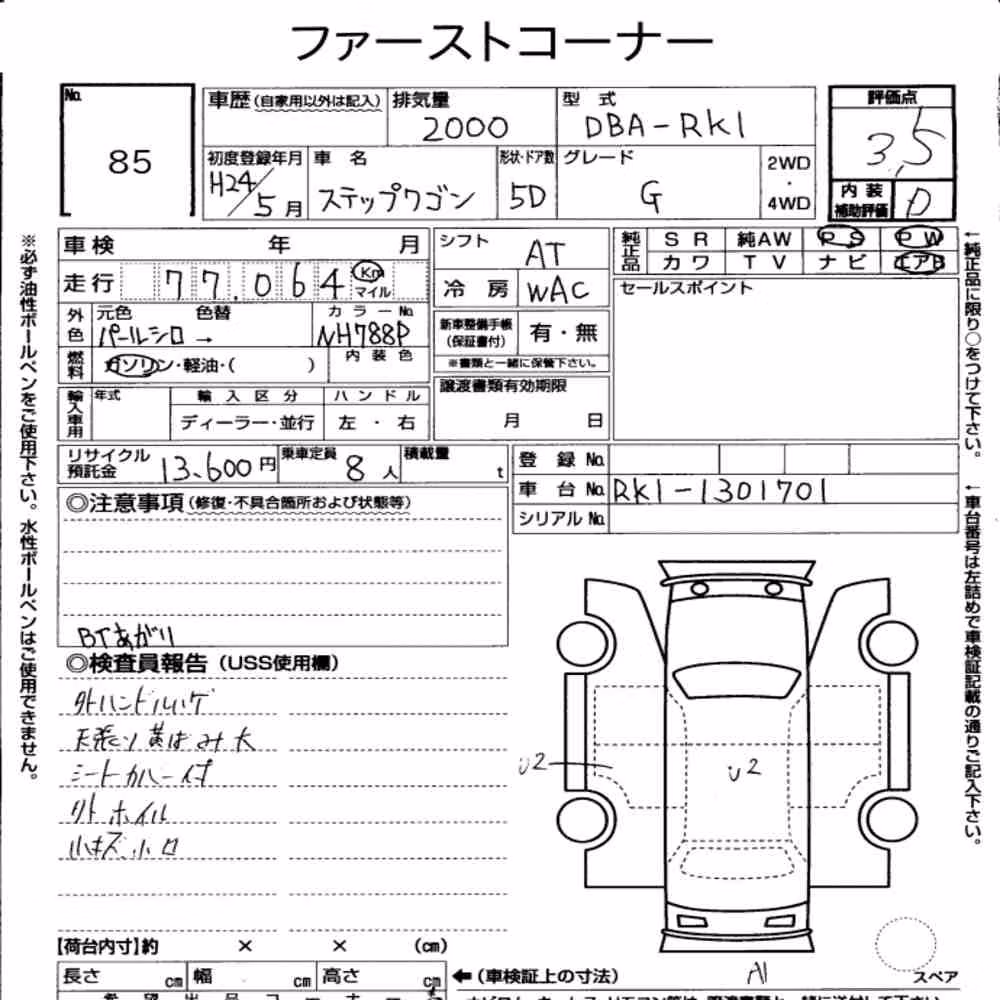 ファーストコーナー
No. 85
車歴(自家用以外は記入) 排気量 2000 型式 DBA-RK1
評価点 3.5
初度登録年月 H24/5月 車名 ステップワゴン 形状・ドア数 5D グレード G 2WD・4WD
内装補助評価 D
車検 年 月
シフト AT
純正品 SR 純AW PS PW
カワ TV ナビ エアB
走行 77.064 Km マイル
冷房 WAC
セールスポイント
外色 元色 パールシロ 色替 → カラーNo. NH788P
新車整備手帳(保証書付) 有・無
※書類と一緒に保管下さい。
燃料 ガソリン・軽油・( ) 内装色
譲渡書類有効期限 月 日
輸入車用 年式 輸入区分 ハンドル
ディーラー・並行 左・右
リサイクル預託金 13.600円 乗車定員 8人 積載量 t
登録No.
車台No. RK1-1301701
シリアルNo.
◎注意事項(修復・不具合箇所および状態等)
BTあがり
◎検査員報告(USS使用欄)
外ハンドルハゲ
天張り黄ばみ大
シートカバー付
外ホイル
小キズ小凹
U2
U2
A1
スペア
【荷台内寸】約 × × (cm)
長さ cm 幅 cm 高さ cm ←(車検証上の寸法)
※必ず油性ボールペンをご使用下さい。水性ボールペンはご使用できません。
←純正品に限り○をつけて下さい。
←車台番号は左詰めで車検証記載の通りご記入下さい。